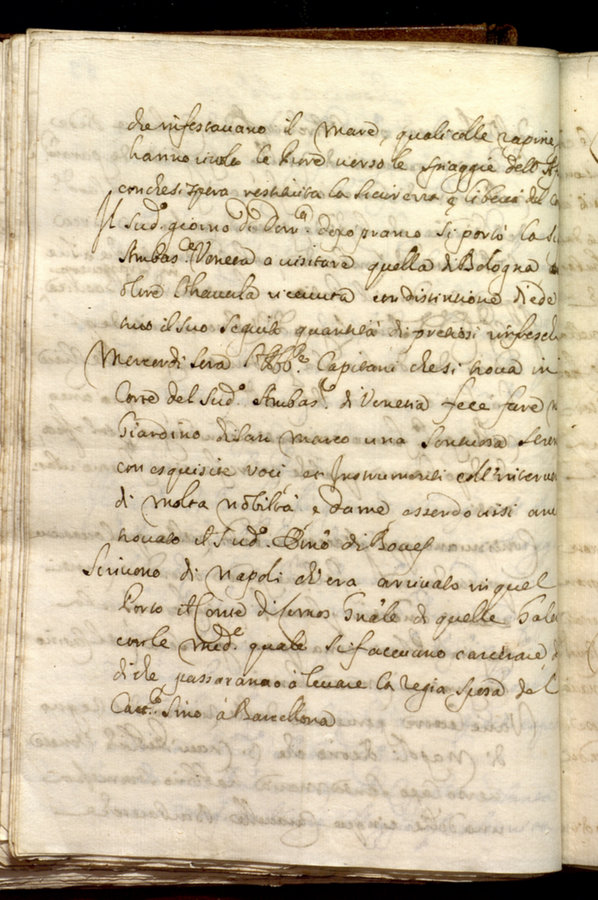 che infestauano il Mare, quali colle rapine
hanno le prore uerso le spiaggie dell
conche si spera restituita la sicurezza
Il Sud.º giorno di dopo pranzo si portò la
Ambas.ce Veneta a uisitare quella di Bologna
oltre hauerla riceuuta con distintione diede
tutto il suo seguito quantità di pretiosi rinfreschi
Mercordi sera Capitani che si troua in
Corte del Sud.º Ambas.re di Venetia fece fare
Giardino di San Marco una sontuosa Seren
con esquisite uoci et Instrumenti coll'interuen
di molta nobiltà, e dame, essendouisi anc
trouato il Sud.º
Scriuono di Napoli ch'era arriuato in quel
Porto il Conte di lemos Gnãle di quelle Gale
con le med.e quale si faceuano carenare,
di che passaranno à leuare la regia sposa del
Catt.co sino à Barcellona